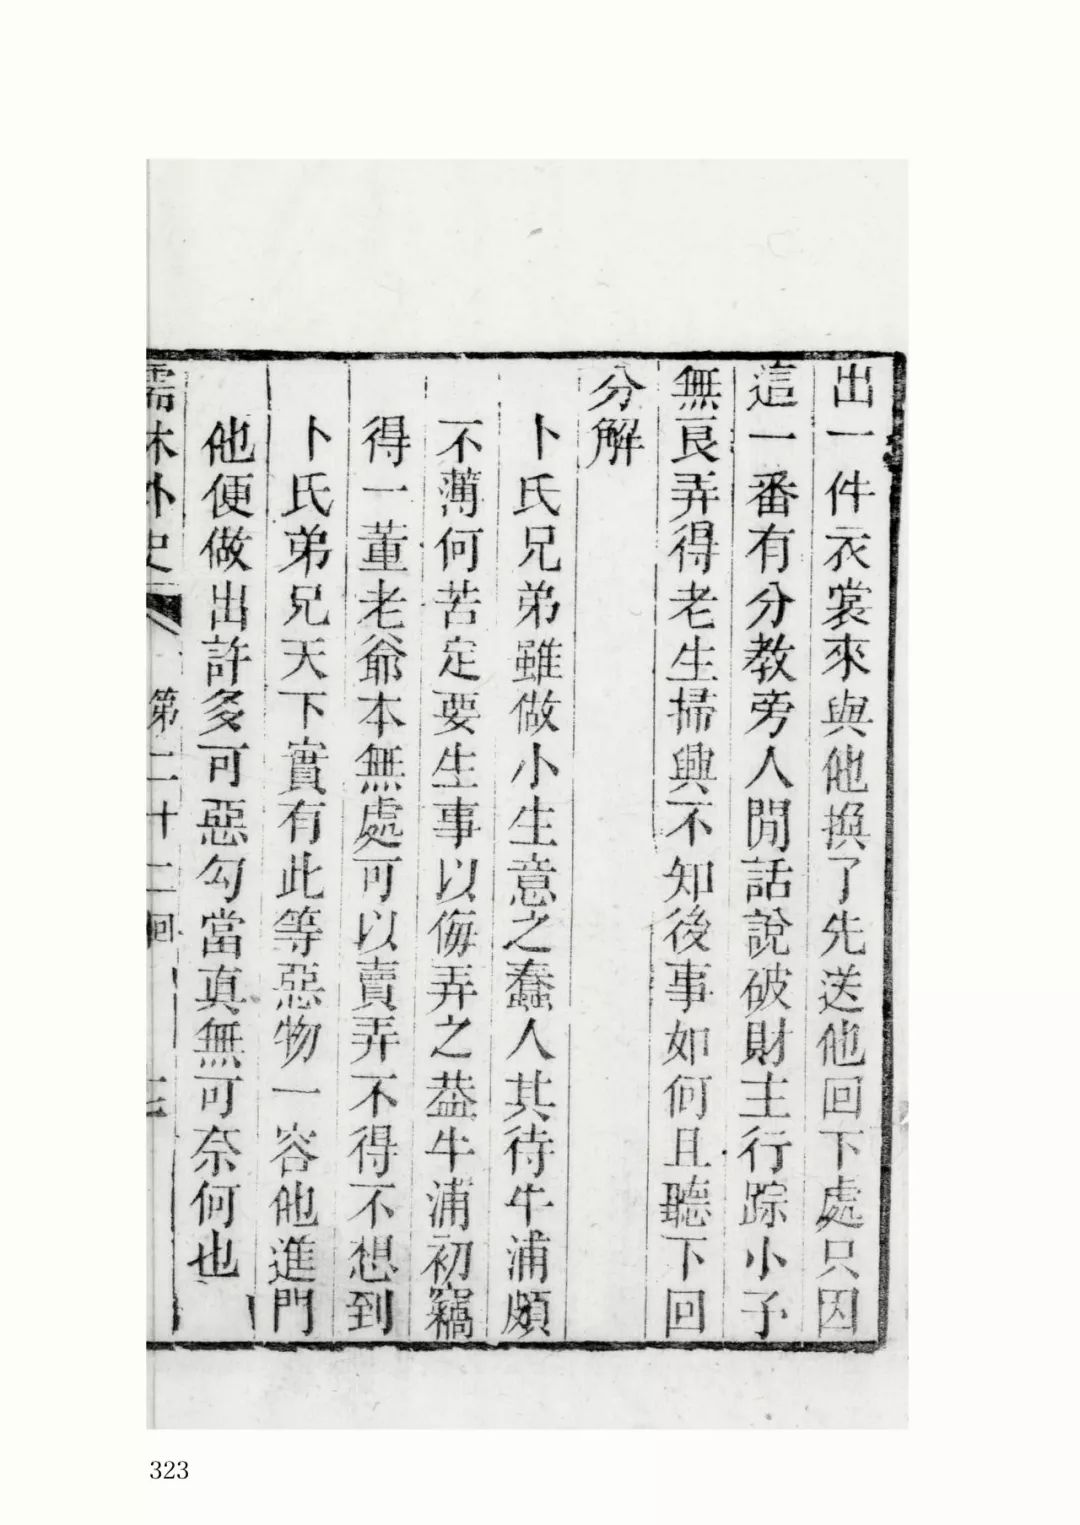 出一件衣裳來與他換了先送他回下處只因
這一番有分教旁人閒話說破財主行踪小子
無良弄得老生掃興不知後事如何且聽下回
分解
卜氏兄弟雖做小生意之蠢人其待牛浦頗
不薄何苦定要生事以侮弄之葢牛浦初竊
得一董老爺本無處可以賣弄不得不想到
卜氏弟兄天下實有此等惡物一容他進門
他便做出許多可惡勾當真無可奈何也
儒林外史 第二十二回
323